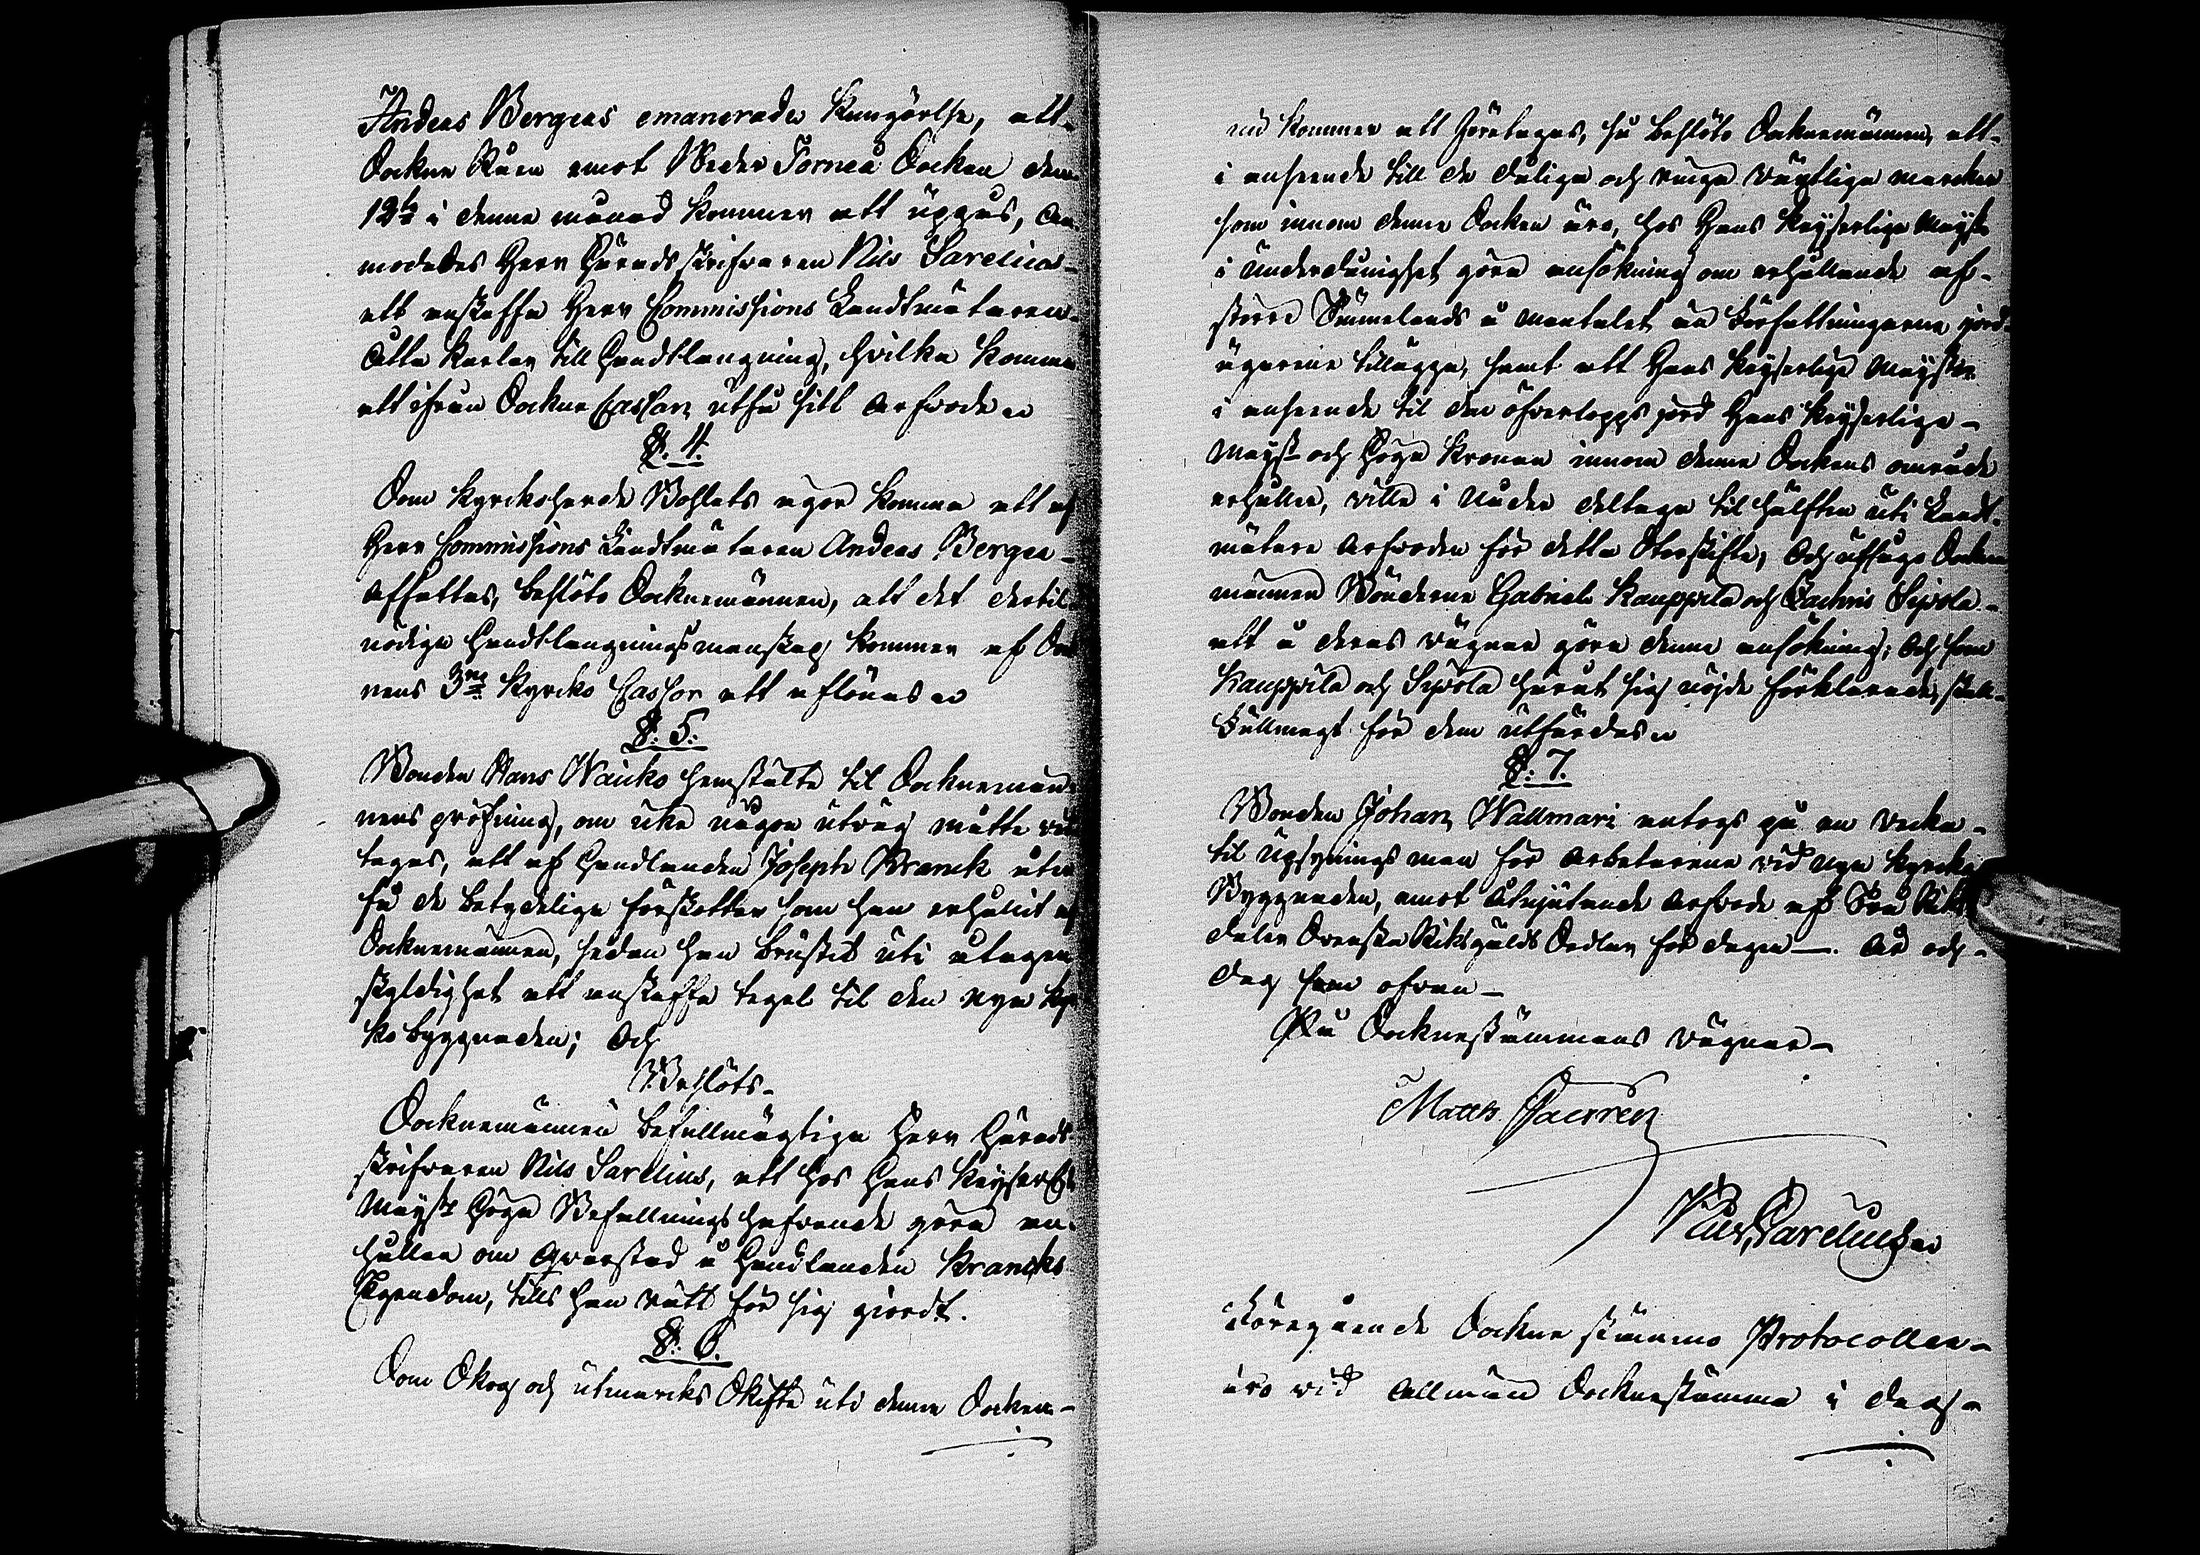 Anders Bergers emanerade Kungörelse, att
Sockne Råen emot Neder Torneå Socken den
12te i denna månad kommer att uppgås, an-
modades Herr Häradsskrifvaren Nils Sarelius
att anskaffa Herr Commissions Landtmätaren
Åtta karlar till Handtlangning, hvilka komma
att ifrån Sockne Cassan utfå sitt Arfvode
§. 4.
Som Kyrckoherde Bohlets ägor komma att af
Herr Commissions Landtmätaren Anders Berger
Affattas, beslöto Socknemännen, att det dertil
nödiga Handtlangnings manskap kommer af Sock
nens 3ne Kyrcko Cassor att aflönas
§: 5:
Bonden Hans Waicko hemstälte til Socknemän-
nens pröfning, om icke någon utväg måtte vid
tagas, att af Handlanden Joseph Kranck åter
få de betydeliga förskotter som han erhållit af
Socknemännen, sedan han brustit uti åtagen
skyldighet att anskaffa tegel til den nya Kyr
kobyggnaden; Och
Beslöts
Socknemännen befullmägtiga Herr Härads
skrifvaren Nils Sarelius, att hos Hans Keyserl:
Mayst: Höga Befallningshafvande göra an-
hållan om Qvarstad å Handlanden Krancks
Egendom, tills han rätt för sig giordt.
§: 6.
Som Skogs och utmarcks Skifte uti denna Socken
nu kommer att företagas, så beslöto Socknemännen, att
i anseende till de dåliga och ringa växtliga marcker
som innom denna Socken äro, hos Hans Keyserliga Mayst:
i underdånighet göra ansökning om erhållande af
större å Mantalet än författningarne jord-
ägarene tillägga, samt att Hans Keyserliga Mayst:
i anseende til den öfverlopps jord Hans Keyserliga
Mayst: och Höga Kronan innom denna Sockens område
erhåller, ville i Nåder deltaga til hälften uti Landt-
mätare Arfvoden för detta Storskifte, Och åtogo Sockne
männen Bönderne Gabriel Kauppila och Sipola
att å deras vägnar göra denna ansökning; Och som
Kauppila och Sipola härut sig nöjde förklarade, skall
Fullmagt för dem utfärdas
§: 7.
Bonden Johan Wallmari antogs på en vecka
til Upsynings man för Arbetarena vid nya Kyrcko
Byggnaden, emot åtnjutande Arfvode af Riks
daler Svenska Riksgälds Sedlar för dagen —. År och
dag som ofvan
På Socknestämmans vägnar
Matts
Nils Sarelius
Föregående Sockne stämmo Protocoller
äro vid Allmän Socknestämma i dag